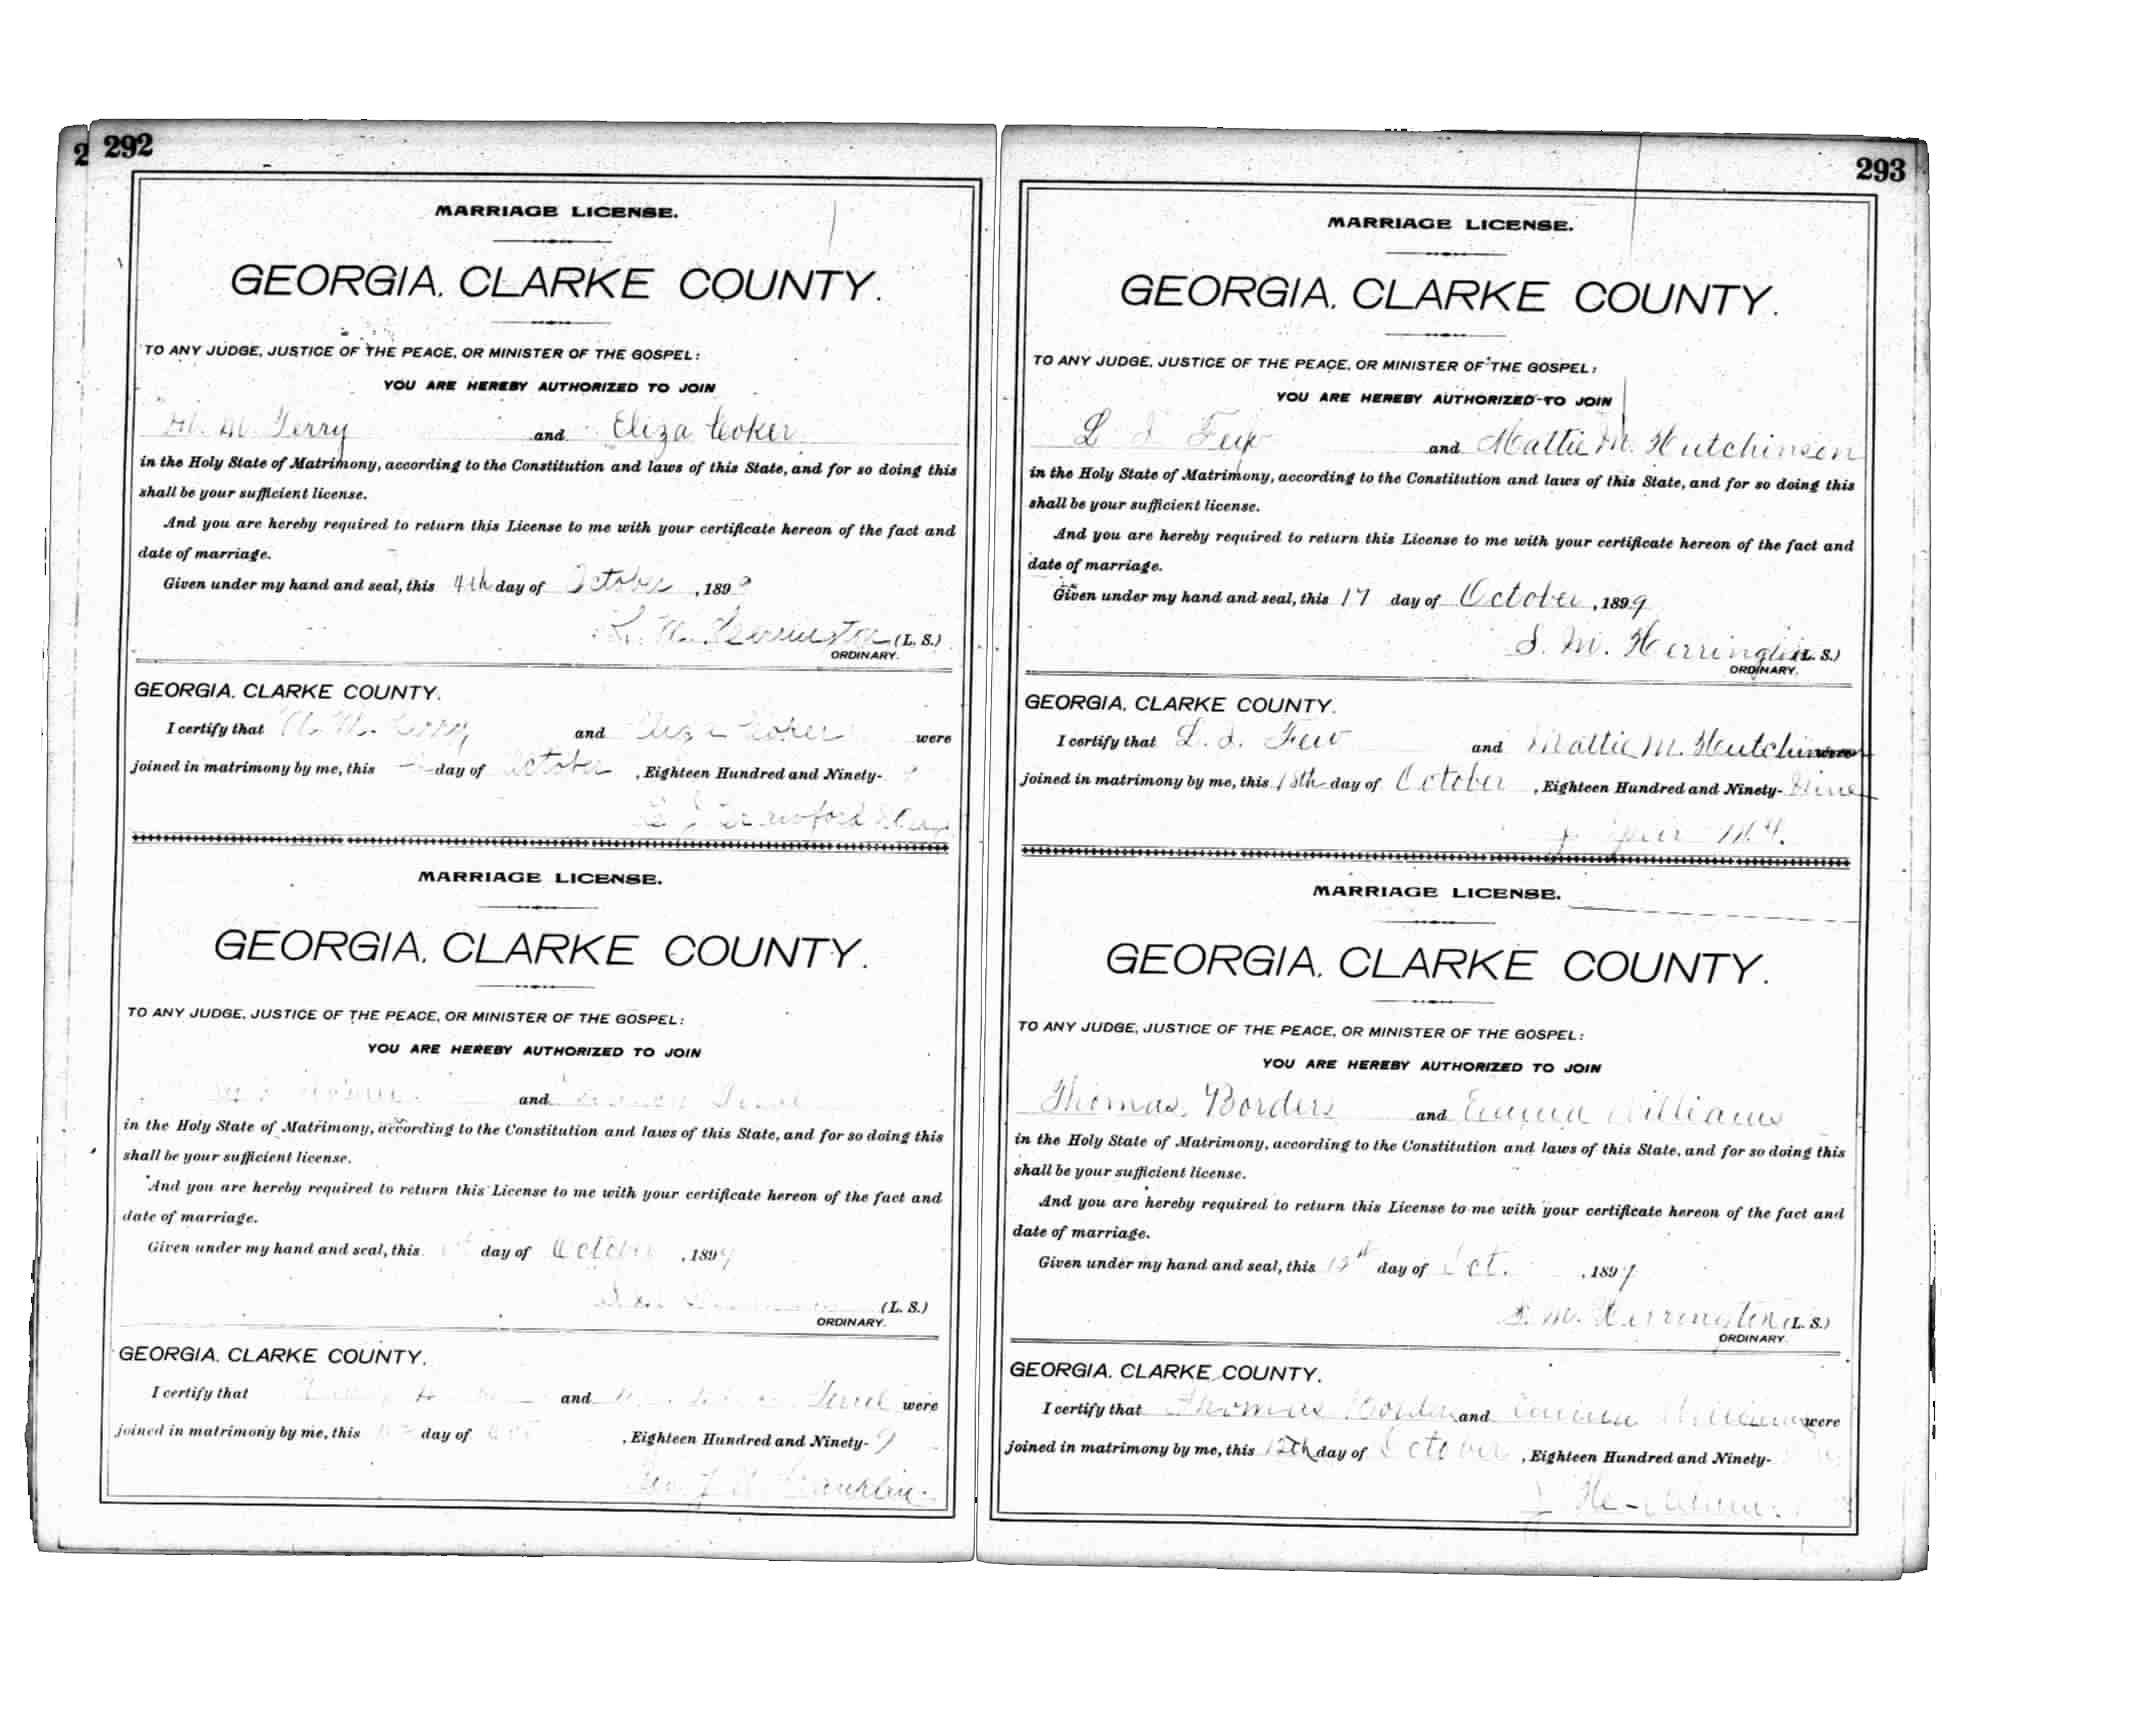 292
MARRIAGE LICENSE.
GEORGIA, CLARKE COUNTY.
TO ANY JUDGE, JUSTICE OF THE PEACE, OR MINISTER OF THE GOSPEL:
YOU ARE HEREBY AUTHORIZED TO JOIN
M. Terry and Eliza Coker
in the Holy State of Matrimony, according to the Constitution and laws of this State, and for so doing this
shall be your sufficient license.
And you are hereby required to return this License to me with your certificate hereon of the fact and
date of marriage.
Given under my hand and seal, this 4th day of October, 1899
Herrington (L. S.)
ORDINARY.
GEORGIA, CLARKE COUNTY.
I certify that M. Terry and Eliza Coker were
joined in matrimony by me, this day of October, Eighteen Hundred and Ninety- 9
Crawford
MARRIAGE LICENSE.
GEORGIA, CLARKE COUNTY.
TO ANY JUDGE, JUSTICE OF THE PEACE, OR MINISTER OF THE GOSPEL:
YOU ARE HEREBY AUTHORIZED TO JOIN
and
in the Holy State of Matrimony, according to the Constitution and laws of this State, and for so doing this
shall be your sufficient license.
And you are hereby required to return this License to me with your certificate hereon of the fact and
date of marriage.
Given under my hand and seal, this day of October, 1899
(L. S.)
ORDINARY.
GEORGIA, CLARKE COUNTY.
I certify that and were
joined in matrimony by me, this day of Oct, Eighteen Hundred and Ninety- 9
Franklin
293
MARRIAGE LICENSE.
GEORGIA, CLARKE COUNTY.
TO ANY JUDGE, JUSTICE OF THE PEACE, OR MINISTER OF THE GOSPEL:
YOU ARE HEREBY AUTHORIZED TO JOIN
L. J. Few and Mattie M. Hutchinson
in the Holy State of Matrimony, according to the Constitution and laws of this State, and for so doing this
shall be your sufficient license.
And you are hereby required to return this License to me with your certificate hereon of the fact and
date of marriage.
Given under my hand and seal, this 17 day of October, 1899
S. M. Herrington (L. S.)
ORDINARY.
GEORGIA, CLARKE COUNTY.
I certify that L. J. Few and Mattie M. Hutchinson were
joined in matrimony by me, this 18th day of October, Eighteen Hundred and Ninety- Nine
M.G.
MARRIAGE LICENSE.
GEORGIA, CLARKE COUNTY.
TO ANY JUDGE, JUSTICE OF THE PEACE, OR MINISTER OF THE GOSPEL:
YOU ARE HEREBY AUTHORIZED TO JOIN
Thomas Borders and Emma Williams
in the Holy State of Matrimony, according to the Constitution and laws of this State, and for so doing this
shall be your sufficient license.
And you are hereby required to return this License to me with your certificate hereon of the fact and
date of marriage.
Given under my hand and seal, this day of Oct., 1899
S. M. Herrington (L. S.)
ORDINARY.
GEORGIA, CLARKE COUNTY.
I certify that Thomas Borders and Emma Williams were
joined in matrimony by me, this 12th day of October, Eighteen Hundred and Ninety-